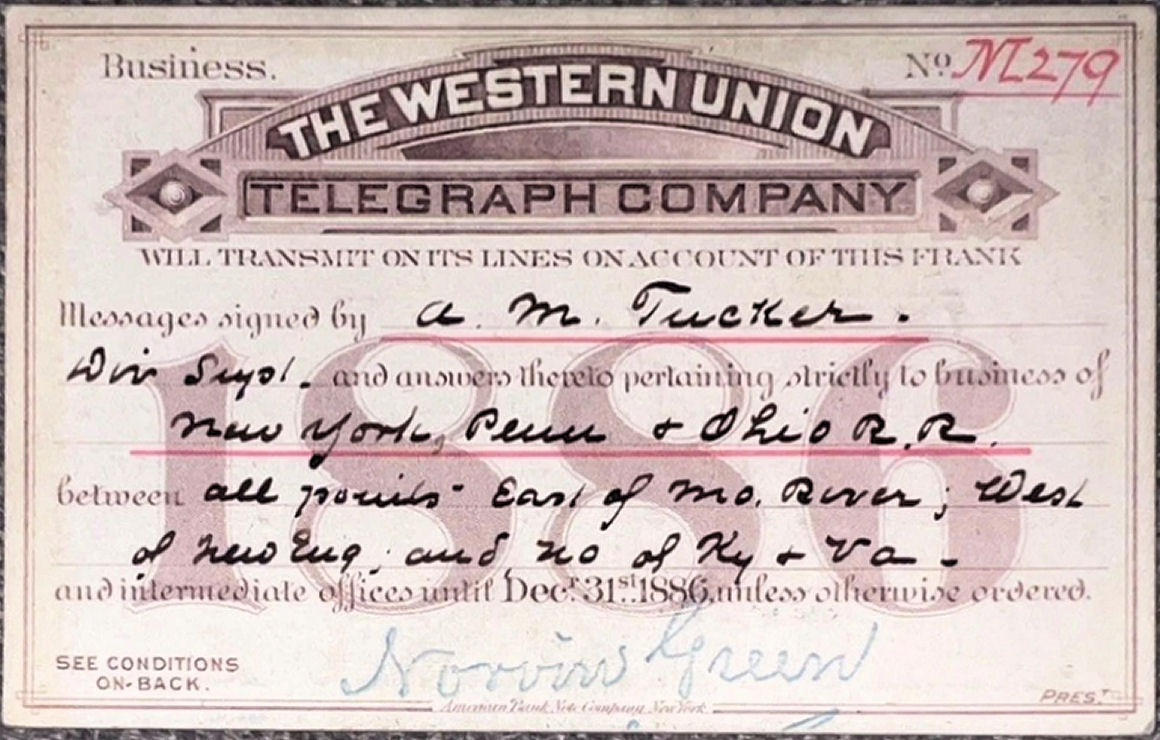 Business.
No. M279
THE WESTERN UNION
TELEGRAPH COMPANY
WILL TRANSMIT ON ITS LINES ON ACCOUNT OF THIS FRANK
Messages signed by A. M. Tucker.
Div Supt. and answers thereto pertaining strictly to business of
New York, Penn & Ohio R.R.
between all points East of Mo. River; West
of New Eng. and No of Ky & Va -
and intermediate offices until Decr. 31st. 1886, unless otherwise ordered.
1886
Norvin Green
SEE CONDITIONS
ON BACK.
PREST.
American Bank Note Company New York